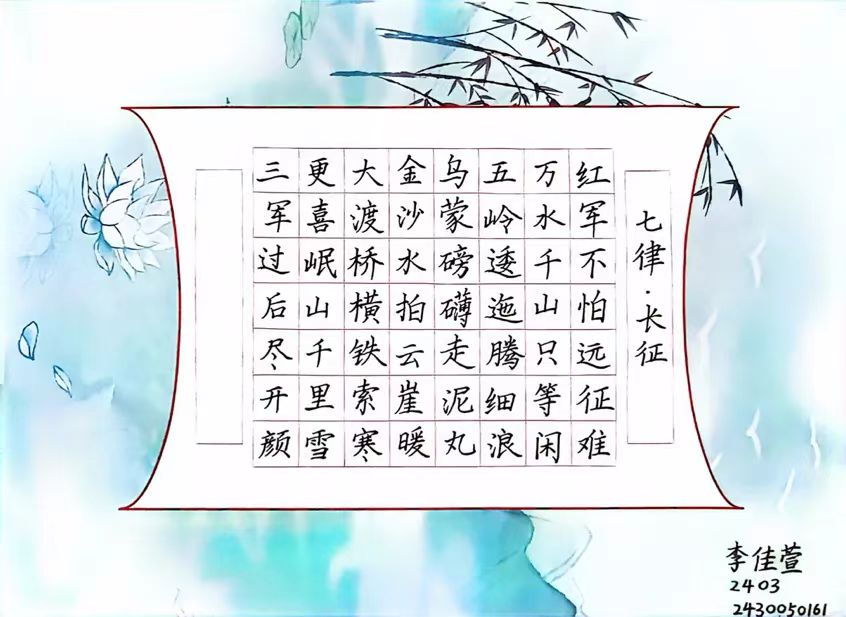 七律·长征
红军不怕远征难
万水千山只等闲
五岭逶迤腾细浪
乌蒙磅礴走泥丸
金沙水拍云崖暖
大渡桥横铁索寒
更喜岷山千里雪
三军过后尽开颜
李佳萱
2403
2430050161